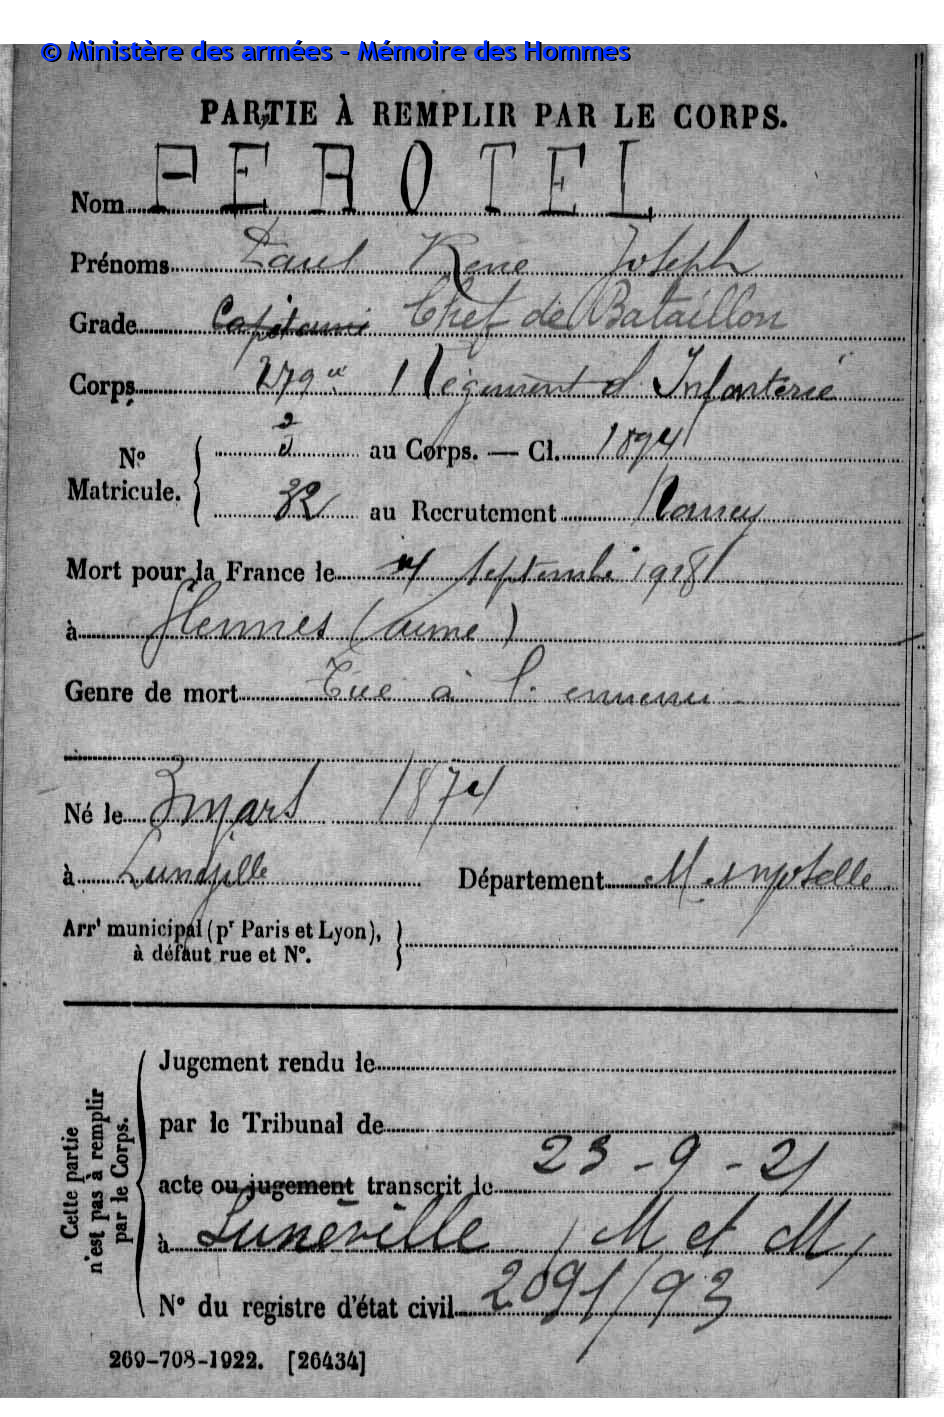 © Ministère des armées - Mémoire des Hommes
PARTIE À REMPLIR PAR LE CORPS.
Nom PEROTEL
Prénoms Paul René Joseph
Grade Capitaine Chef de Bataillon
Corps 279e Régiment d'Infanterie
au Corps. — Cl. 1894
N° Matricule.
32 au Recrutement Nancy
Mort pour la France le septembre 1918
à (Aisne)
Genre de mort Tué à l'ennemi
Né le 3 mars 1874
à Lunéville Département M. et Moselle
Arrt municipal (pr Paris et Lyon),
à défaut rue et N°.
Cette partie
n'est pas à remplir
par le Corps.
Jugement rendu le
par le Tribunal de
acte ou jugement transcrit le 23-9-21
à Lunéville (M et M)
N° du registre d'état civil 2091/93
269-708-1922. [26434]